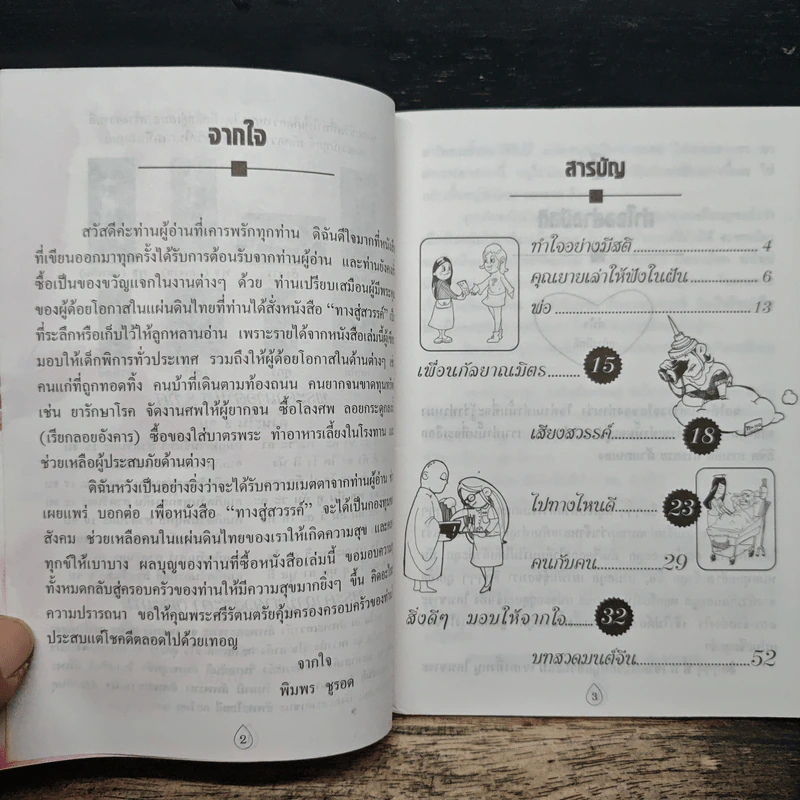 จากใจ
สวัสดีค่ะท่านผู้อ่านที่เคารพรักทุกท่าน ดิฉันดีใจมากที่หนังสือ
ที่เขียนออกมาทุกครั้งได้รับการต้อนรับจากท่านผู้อ่าน และท่านยังคง
ซื้อเป็นของขวัญแจกในงานต่างๆ ด้วย ท่านเปรียบเสมือนผู้มีพระคุณ
ของผู้ด้อยโอกาสในแผ่นดินไทยที่ท่านได้สั่งหนังสือ “ทางสู่สวรรค์”
ที่ระลึกหรือเก็บไว้ให้ลูกหลานอ่าน เพราะรายได้จากหนังสือเล่มนี้
มอบให้เด็กพิการทั่วประเทศ รวมถึงให้ผู้ด้อยโอกาสในด้านต่างๆ
คนแก่ที่ถูกทอดทิ้ง คนบ้าที่เดินตามท้องถนน คนยากจนขาดทุนทรัพย์
เช่น ยารักษาโรค จัดงานศพให้ผู้ยากจน ซื้อโลงศพ ลอยกระดูก
(เรียกลอยอังคาร) ซื้อของใส่บาตรพระ ทำอาหารเลี้ยงในโรงทาน
ช่วยเหลือผู้ประสบภัยด้านต่างๆ
ดิฉันหวังเป็นอย่างยิ่งว่าจะได้รับความเมตตาจากท่านผู้อ่าน
เผยแพร่ บอกต่อ เพื่อหนังสือ “ทางสู่สวรรค์” จะได้เป็นกองทุน
สังคม ช่วยเหลือคนในแผ่นดินไทยของเราให้เกิดความสุข และ
ทุกข์ให้เบาบาง ผลบุญของท่านที่ซื้อหนังสือเล่มนี้ ขอมอบความ
ทั้งหมดกลับสู่ครอบครัวของท่านให้มีความสุขมากยิ่งๆ ขึ้น คิด
ความปรารถนา ขอให้คุณพระศรีรัตนตรัยคุ้มครองครอบครัวของท่าน
ประสบแต่โชคดีตลอดไปด้วยเทอญ
จากใจ
พิมพร ชูรอด
2
สารบัญ
ทำใจอย่างมีสติ.......................... 4
คุณยายเล่าให้ฟังในฝัน.................. 6
พ่อ........................................ 13
เพื่อนกัลยาณมิตร......... 15
เสียงสวรรค์.................. 18
ไปทางไหนดี.............. 23
คนกับคน.................... 29
สิ่งดีๆ มอบให้จากใจ........ 32
บทสวดมนต์จีน.......................... 52
3